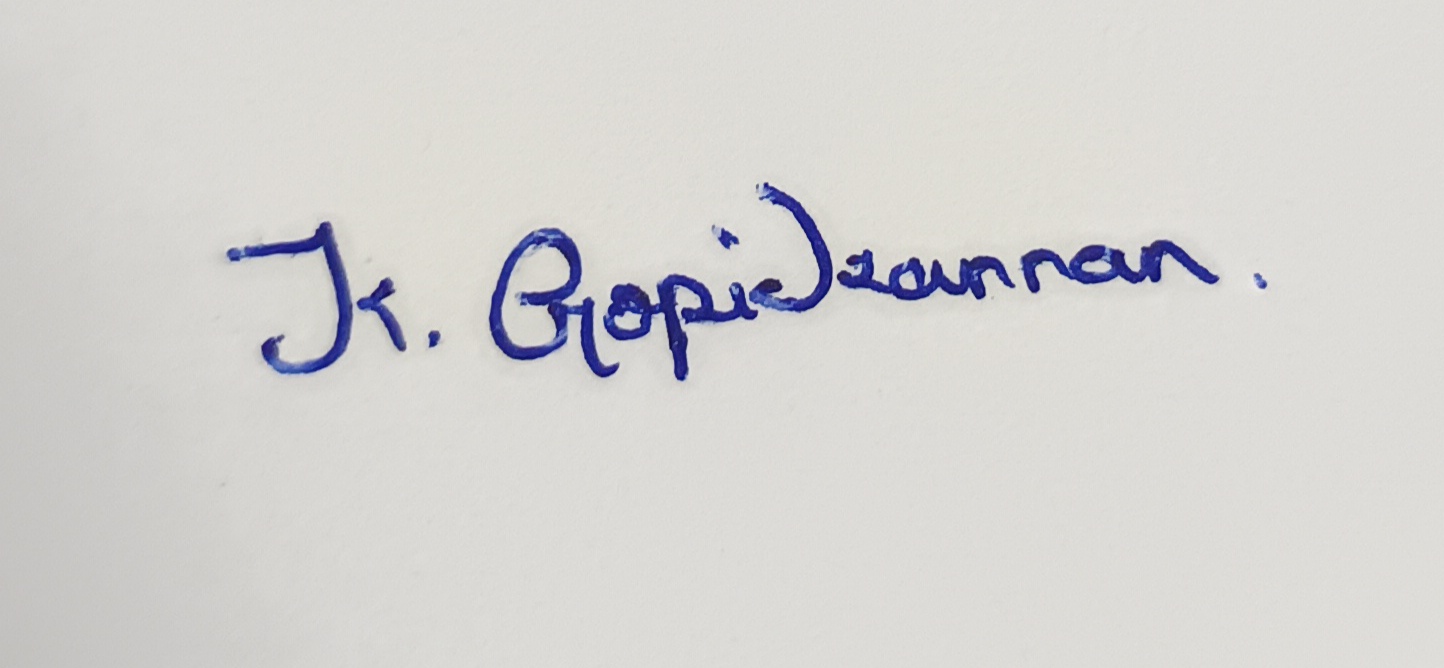 K. Gopikannan.